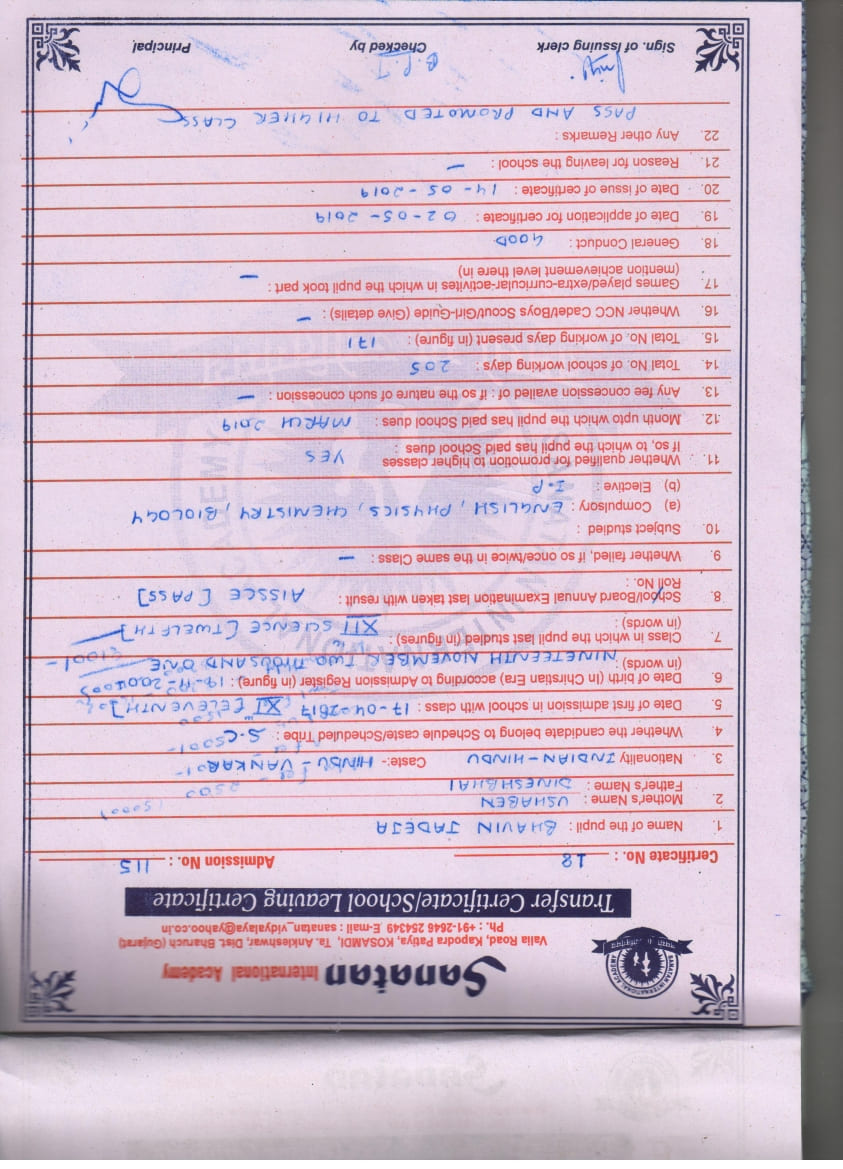 Sanatan International Academy
Valia Road, Kapodra Patiya, KOSAMDI, Ta. Ankleshwar, Dist. Bharuch (Gujarat)
Ph. : +91-2646 254349 E-mail : sanatan_vidyalaya@yahoo.co.in
SANATAN INTERNATIONAL ACADEMY
Transfer Certificate/School Leaving Certificate
Certificate No. : 18 Admission No. : 115
1. Name of the pupil : BHAVIN JADEJA
2. Mother's Name : USHABEN
Father's Name : DINESHBHAI
3. Nationality INDIAN-HINDU Caste:- HINDU-VANKAR
4. Whether the candidate belong to Schedule caste/Scheduled Tribe : S.C
5. Date of first admission in school with class : 17-04-2017 XI [ELEVENTH]
6. Date of birth (in Chirstian Era) according to Admission Register (in figure) : 19-11-2001
(in words) : NINETEENTH NOVEMBER TWO THOUSAND ONE
7. Class in which the pupil last studied (in figures) :
(in words) : XII SCIENCE [TWELFTH]
8. School/Board Annual Examination last taken with result : AISSCE [PASS]
Roll No. :
9. Whether failed, if so once/twice in the same Class : —
10. Subject studied :
(a) Compulsory : ENGLISH, PHYSICS, CHEMISTRY, BIOLOGY
(b) Elective : I.P
11. Whether qualified for promotion to higher classes YES
If so, to which the pupil has paid School dues :
12. Month upto which the pupil has paid School dues : MARCH 2019
13. Any fee concession availed of : if so the nature of such concession : —
14. Total No. of school working days : 205
15. Total No. of working days present (in figure) : 171
16. Whether NCC Cadet/Boys Scout/Girl-Guide (Give details) : —
17. Games played/extra-curricular-activites in which the pupil took part : —
(mention achievement level there in)
18. General Conduct : GOOD
19. Date of application for certificate : 02-05-2019
20. Date of issue of certificate : 14-05-2019
21. Reason for leaving the school : —
22. Any other Remarks :
PASS AND PROMOTED TO HIGHER CLASS
Sign. of Issuing clerk Checked by Principal